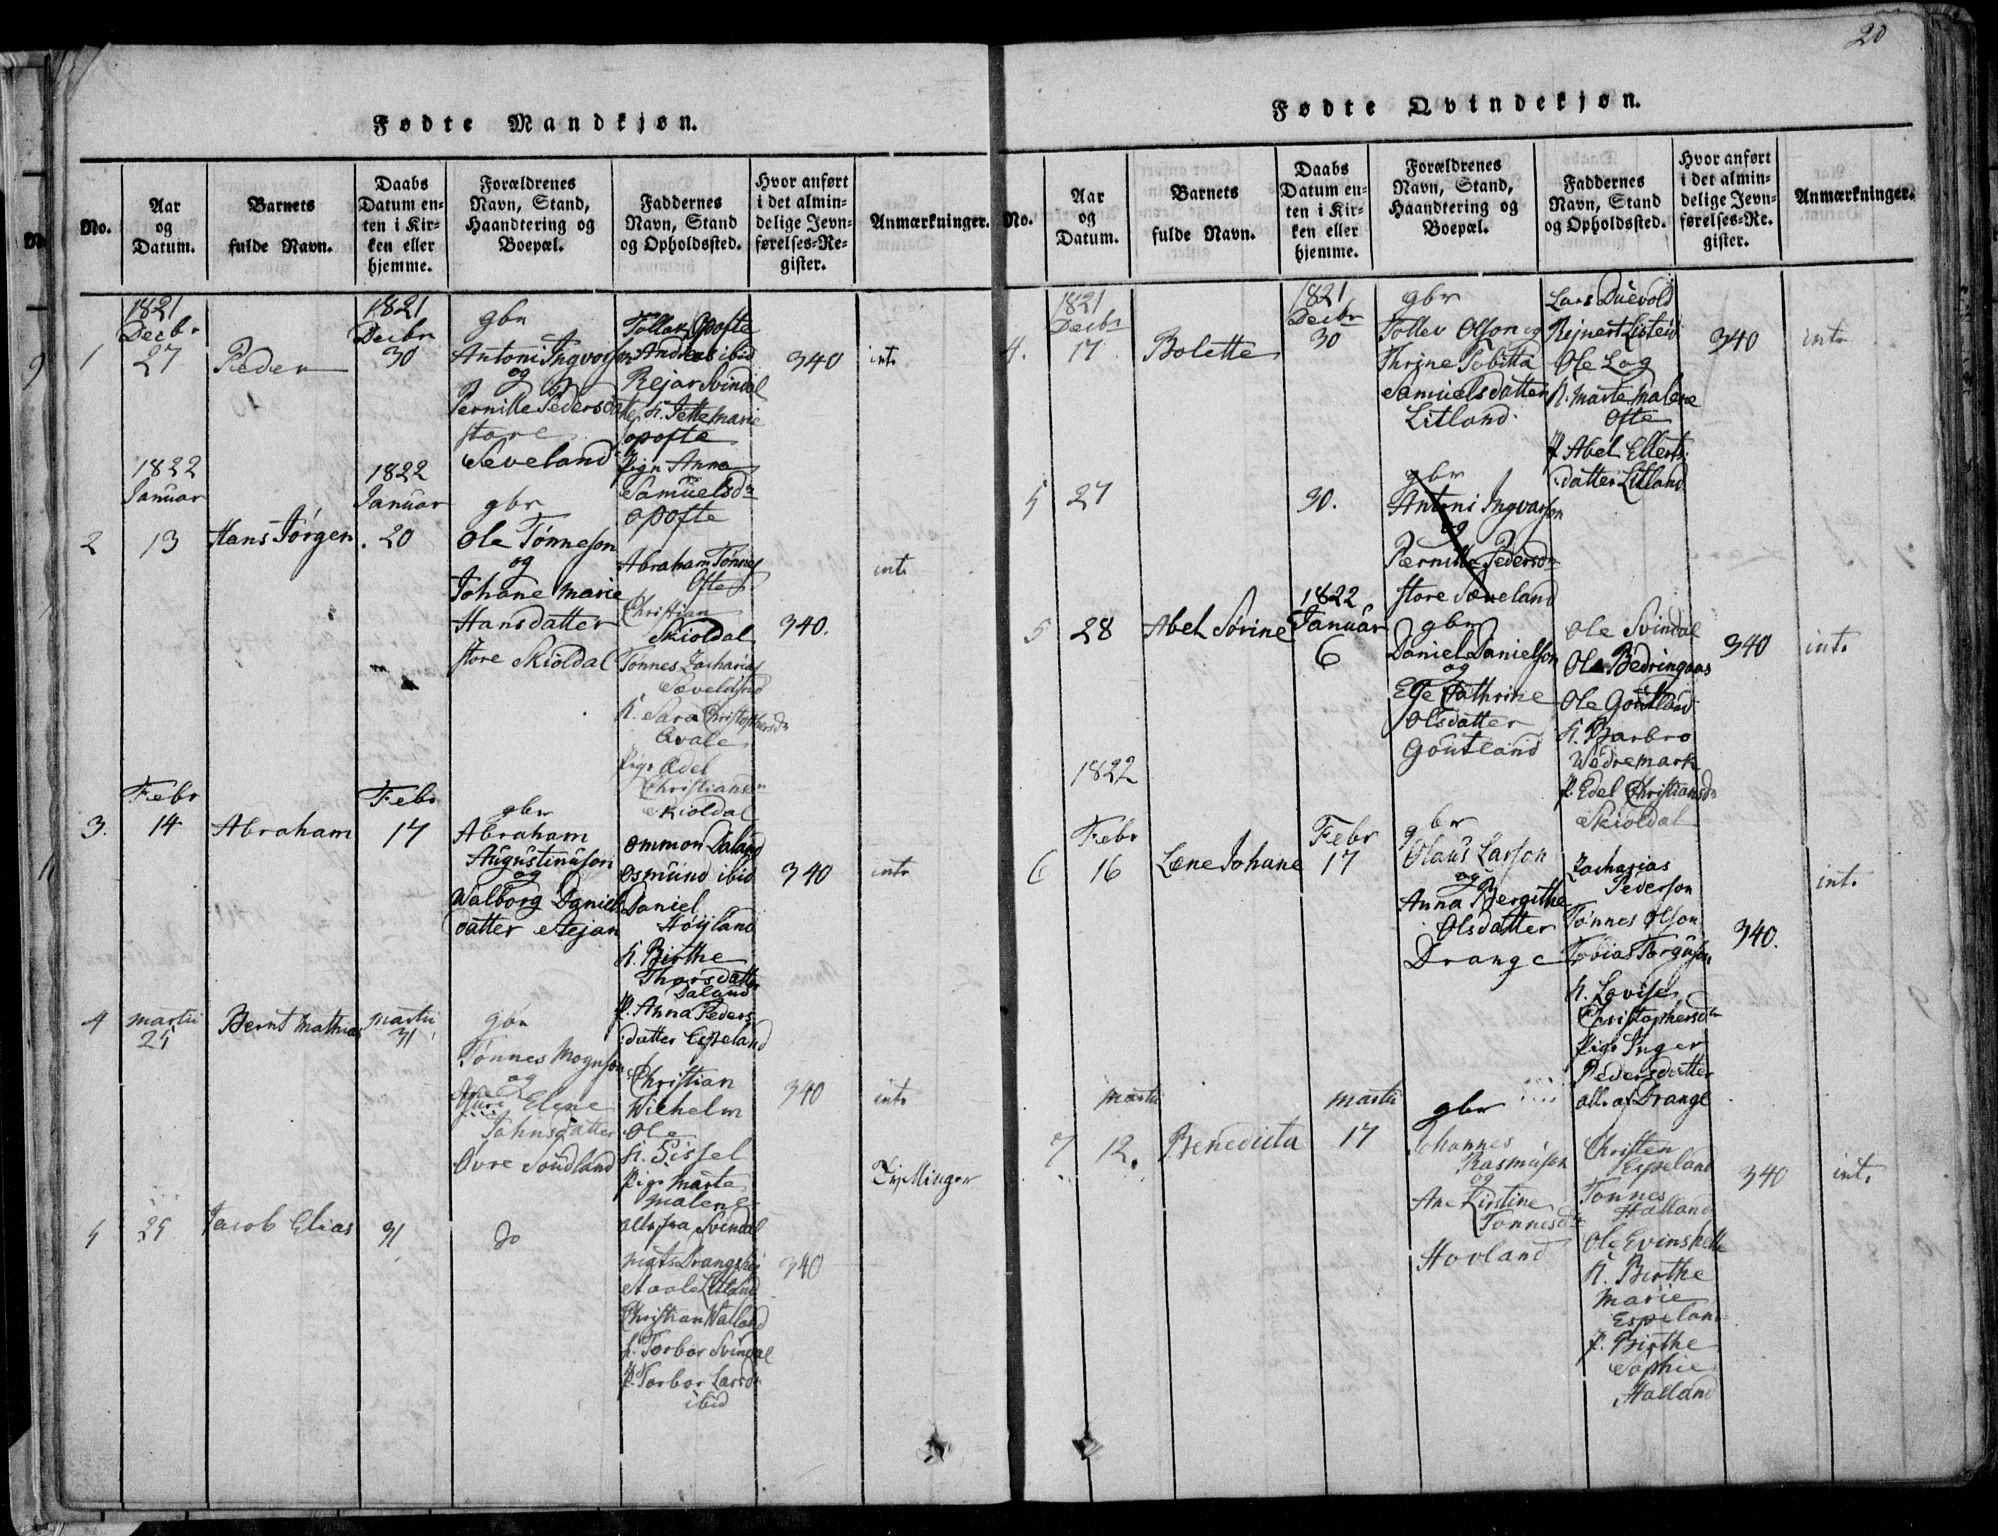 20
Fødte Mandkjøn.
No.
Aar
og
Datum.
Barnets
fulde Navn.
Daabs
Datum en-
ten i Kir-
ken eller
hjemme.
Forældrenes
Navn, Stand,
Haandtering og
Boepæl.
Faddernes
Navn, Stand
og Opholdssted.
Hvor anført
i det almin-
delige Jevn-
førelses-Re-
gister.
Anmærkninger.
1
1821
Decbr
27
Peder
1821
Decbr
30
gbr
Antoni Ingvorson
og
Pernille Pedersdatter
store
Seveland
Tollak opofte
Andreas ibid
Rejar Svindal
k. Jette marie
opofte
Pign Anna
Samuelsdr
opofte
340
int.
2
1822
Januar
13
Hans Jørgen
1822
Januar
20
gbr
Ole Tønneson
og
Johane Marie
Hansdatter
store Skioldal
Abraham Tønnes
Ofte
Christian
Skioldal
Tønnes Zacharias
Sæveland
k. Sara Christophersdr
Qvale
Pige Edel
Christiansdr
Skioldal
340.
int.
3.
Febr
14
Abraham
Febr
17
gbr
Abraham
Augustinuson
og
Walborg Daniels
datter Stejan
ommon Daland
osmund ibid
Daniel
Høyland
k. Birthe
Thorsdatter
Daland
P. Anna Peders
:datter Espeland
340
int.
4
martii
25
Bernt Mathias
martii
31
gbr
Tønnes Mognson
og
Elene
Johnsdatter
Øvre Søndland
Christian
Wilhelm
Ole
k. Sissel
Pige Marte
Malene
alle fra Svindal
340
int.
Tvillinger
5
25
Jacob Elias
31
do
Mats Drangshej
Staale Litland
Christian Walland
k. Torbor Svindal
P. Torbor Larsdr
ibid
340
Fødte Qvindekjøn.
No.
Aar
og
Datum.
Barnets
fulde Navn.
Daabs
Datum en-
ten i Kir-
ken eller
hjemme.
Forældrenes
Navn, Stand,
Haandtering og
Boepæl.
Faddernes
Navn, Stand
og Opholdssted.
Hvor anført
i det almin-
delige Jevn-
førelses-Re-
gister.
Anmærkninger.
4.
1821
Decbr
17
Bolette
1821
Decbr
30
gbr
Tollev Olson og
Thrine Tobitta
Samuelsdatter
Litland.
Lars Duevold
Rejnert Listeid
Ole Log
k. Marte Malene
Ofte
P. Abel Ellerts:
:datter Litland
340
int.
5
27
30.
gbr
Antoni Ingvarson
og
Pernille Pedersdr
store Sæveland
5
28
Abel Sørine
1822
Januar
6
gbr
Daniel Danielson
og
Else Cathrine
Olsdatter
Goutland
Ole Svindal
Ole Bedringaas
Ole Goutland
k. Barbro
Wedremark
P. Edel Christiansdr
Skioldal
340
int.
6
1822
Febr
16
Lene Johane
Febr
17
gbr
Olaus Larson
og
Anna Bergithe
Olsdatter
Drange
Zacharias
Pederson
Tønnes Olson
Tobias Torguson
k. Lovise
Christophersdr
Pige Inger
Pedersdatter
alle af Drange
340.
int.
7
martii
12.
Benedicta
martii
17
gbr
Johannes
Rasmuson
og
Ane Kirstine
Tønnesdr
Hovland
Christen
Espeland
Tønnes
Halland
Ole Evinshelle
k. Birthe
Marie
Espeland
P. Birthe
Sophie
Halland
340
int.